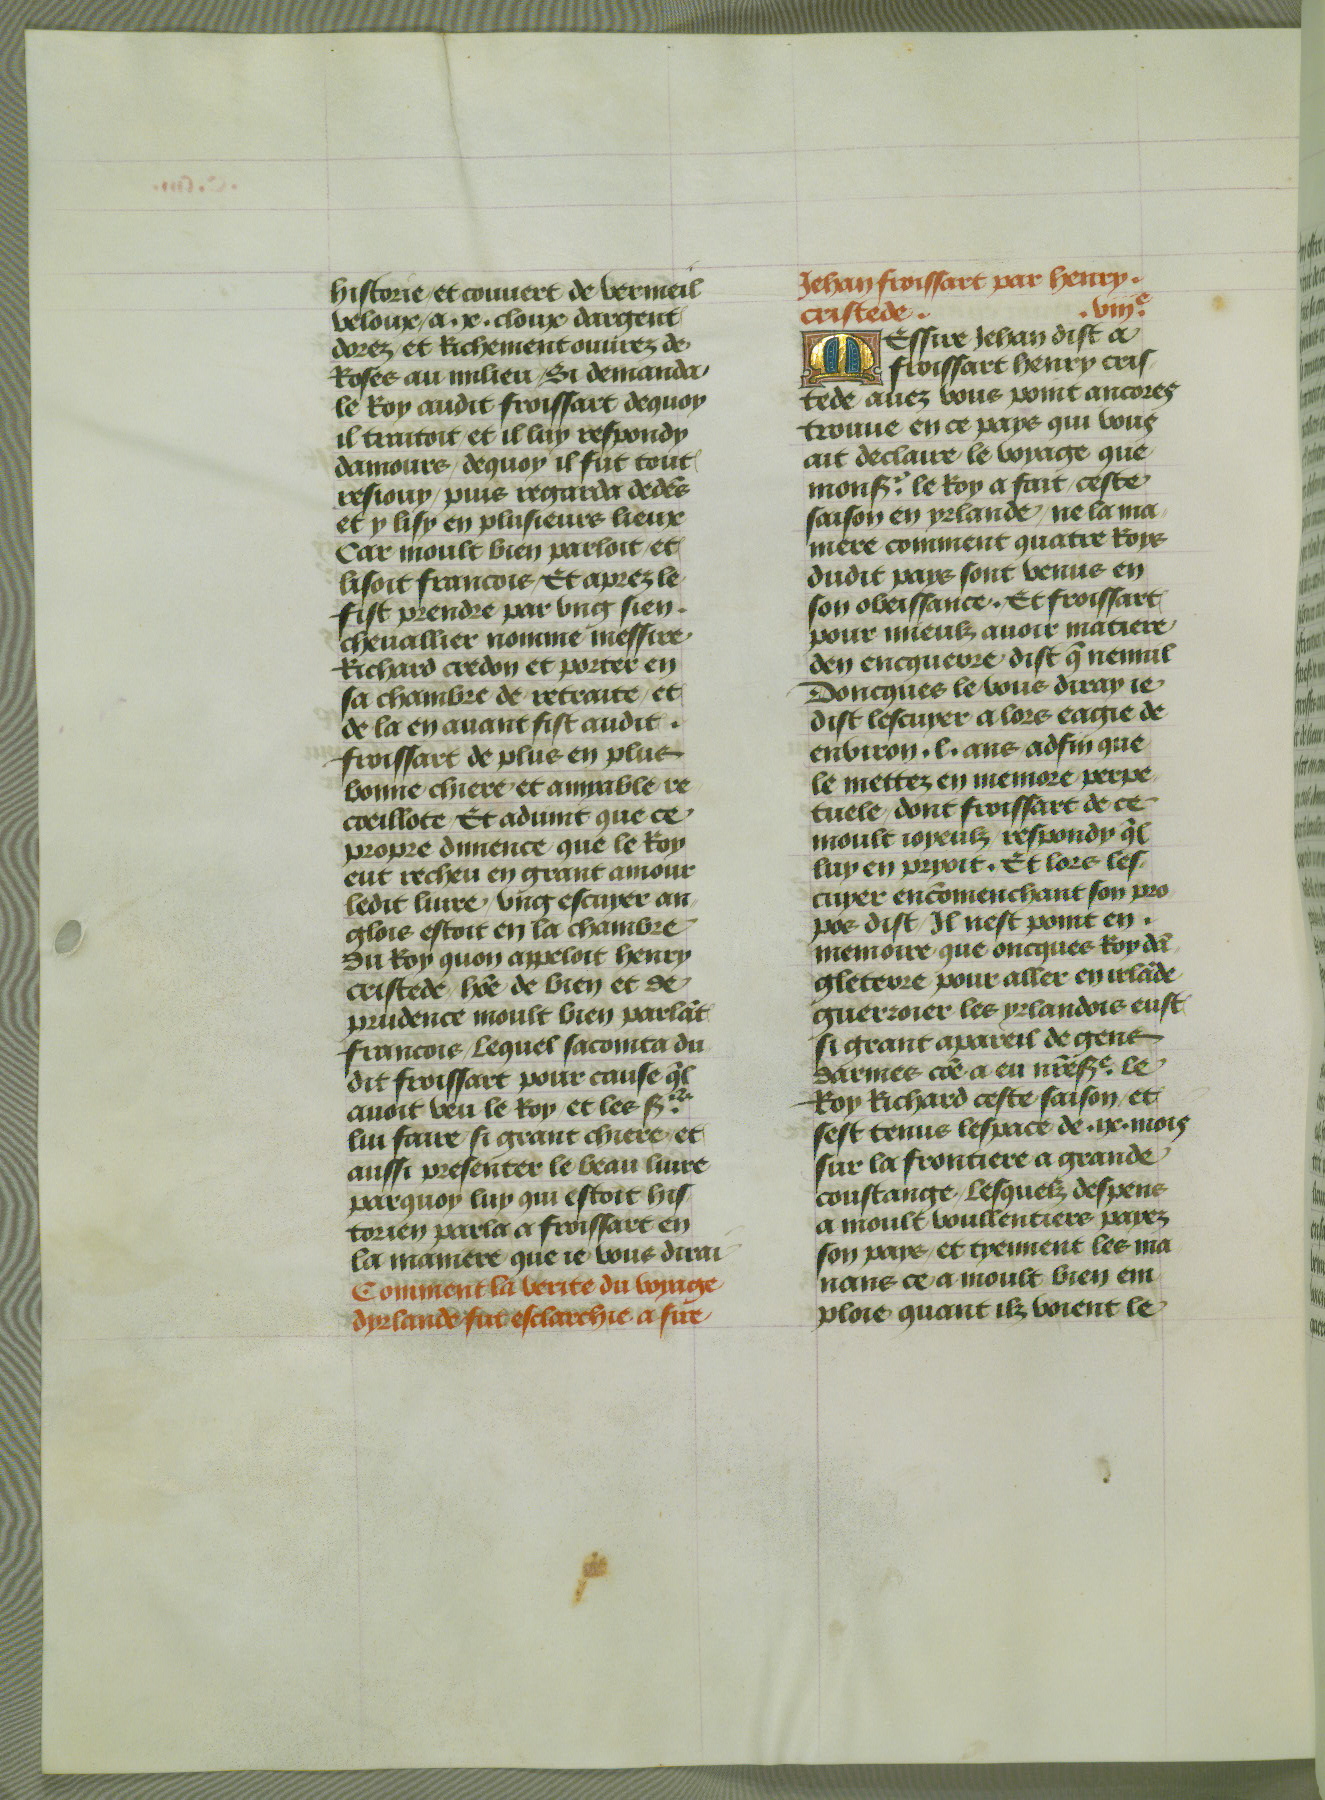 historie et couuert de vermeil
veloux a .x. cloux dargent
dorez et Richement ouurez de
Roses au milieu Si demanda
le Roy audit froissart dequoy
il traitoit et il luy respondy
damours dequoy il fut tout
resiouy puis regarda dedẽs
et y lisy en plusieurs lieux
Car moult bien parloit et
lisoit francois Et aprez le
fist prendre par vng sien .
cheuallier nomme messire
Richard credon et porter en
sa chambre de retraite et
de la en auant fist audit .
froissart de plus en plus
bonne chiere et amyable re
coeillote Et aduint que ce
propre dimence que le Roy
eut recheu en grant amour
ledit liure vng escuyer an
glois estoit en la chambre
du Roy quon appeloit henry
cristede hõe de bien et de
prudence moult bien parlãt
francois Lequel sacointa du
dit froissart pour cause q̃l
auoit veu le Roy et les sʳˢ
lui faire si grant chiere et
aussi presenter le beau liure
parquoy luy qui estoit his
torien parla a froissart en
la maniere que ie vous dirai
Comment la verite du voyage
dyrlande fut esclarchie a sire
Jehan froissart par henry .
cristede . . viijᵉ.
MEssire Jehan dist a
froissart henry cris
tede auez vous point ancores
trouue en ce pays qui vous
ait declaire le voyage que
monsʳ. le Roy a fait ceste
saison en yrlande ne la ma
niere comment quatre Roys
dudit pays sont venus en
son obeissance . Et froissart
pour mieulz auoir matiere
den encquerre dist q̃ nennil
Doncques le vous diray ie
dist lescuyer a lors eagie de
environ .l. ans adfin que
le mettez en memore perpe
tuele dont froissart de ce
moult ioyeulz respondy q̃l
luy en pryoit . Et lors les
cuyer encõmenchant son pro
pos dist Il nest point en .
memoire que oncques Roy dã
gleterre pour aller en irlãde
guerroier les yrlandois eust
si grant apareil de gens
darmes cõe a eu nr̃e sʳ. le
Roy Richard ceste saison et
sest tenus lespace de .ix. mois
sur la frontiere a grande
coustange Lesquelz despens
a moult voullentiers payez
son pays et tyennent les ma
nans ce a moult bien em
ploie quant ilz voient le